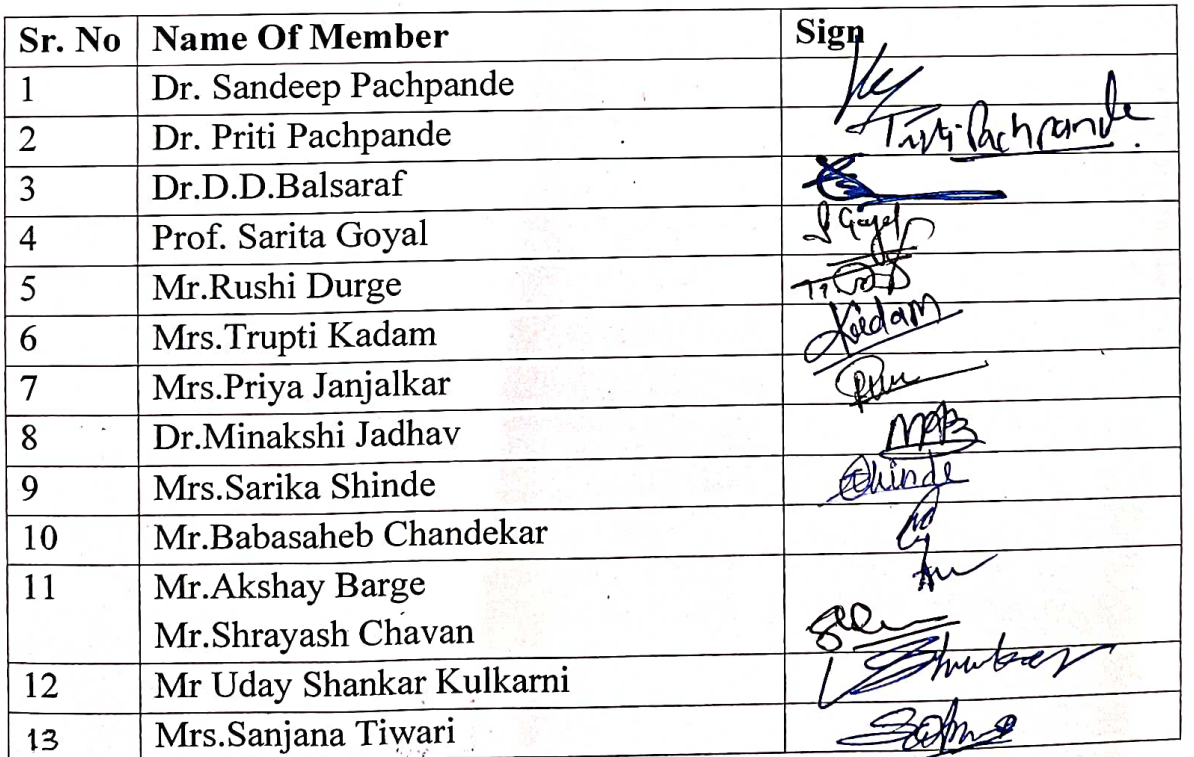 Sr. No Name Of Member Sign
1 Dr. Sandeep Pachpande
2 Dr. Priti Pachpande Priti Pachpande.
3 Dr.D.D.Balsaraf
4 Prof. Sarita Goyal S Goyal
5 Mr.Rushi Durge
6 Mrs.Trupti Kadam Kadam
7 Mrs.Priya Janjalkar
8 Dr.Minakshi Jadhav
9 Mrs.Sarika Shinde Shinde
10 Mr.Babasaheb Chandekar
11 Mr.Akshay Barge
Mr.Shrayash Chavan
12 Mr Uday Shankar Kulkarni
13 Mrs.Sanjana Tiwari